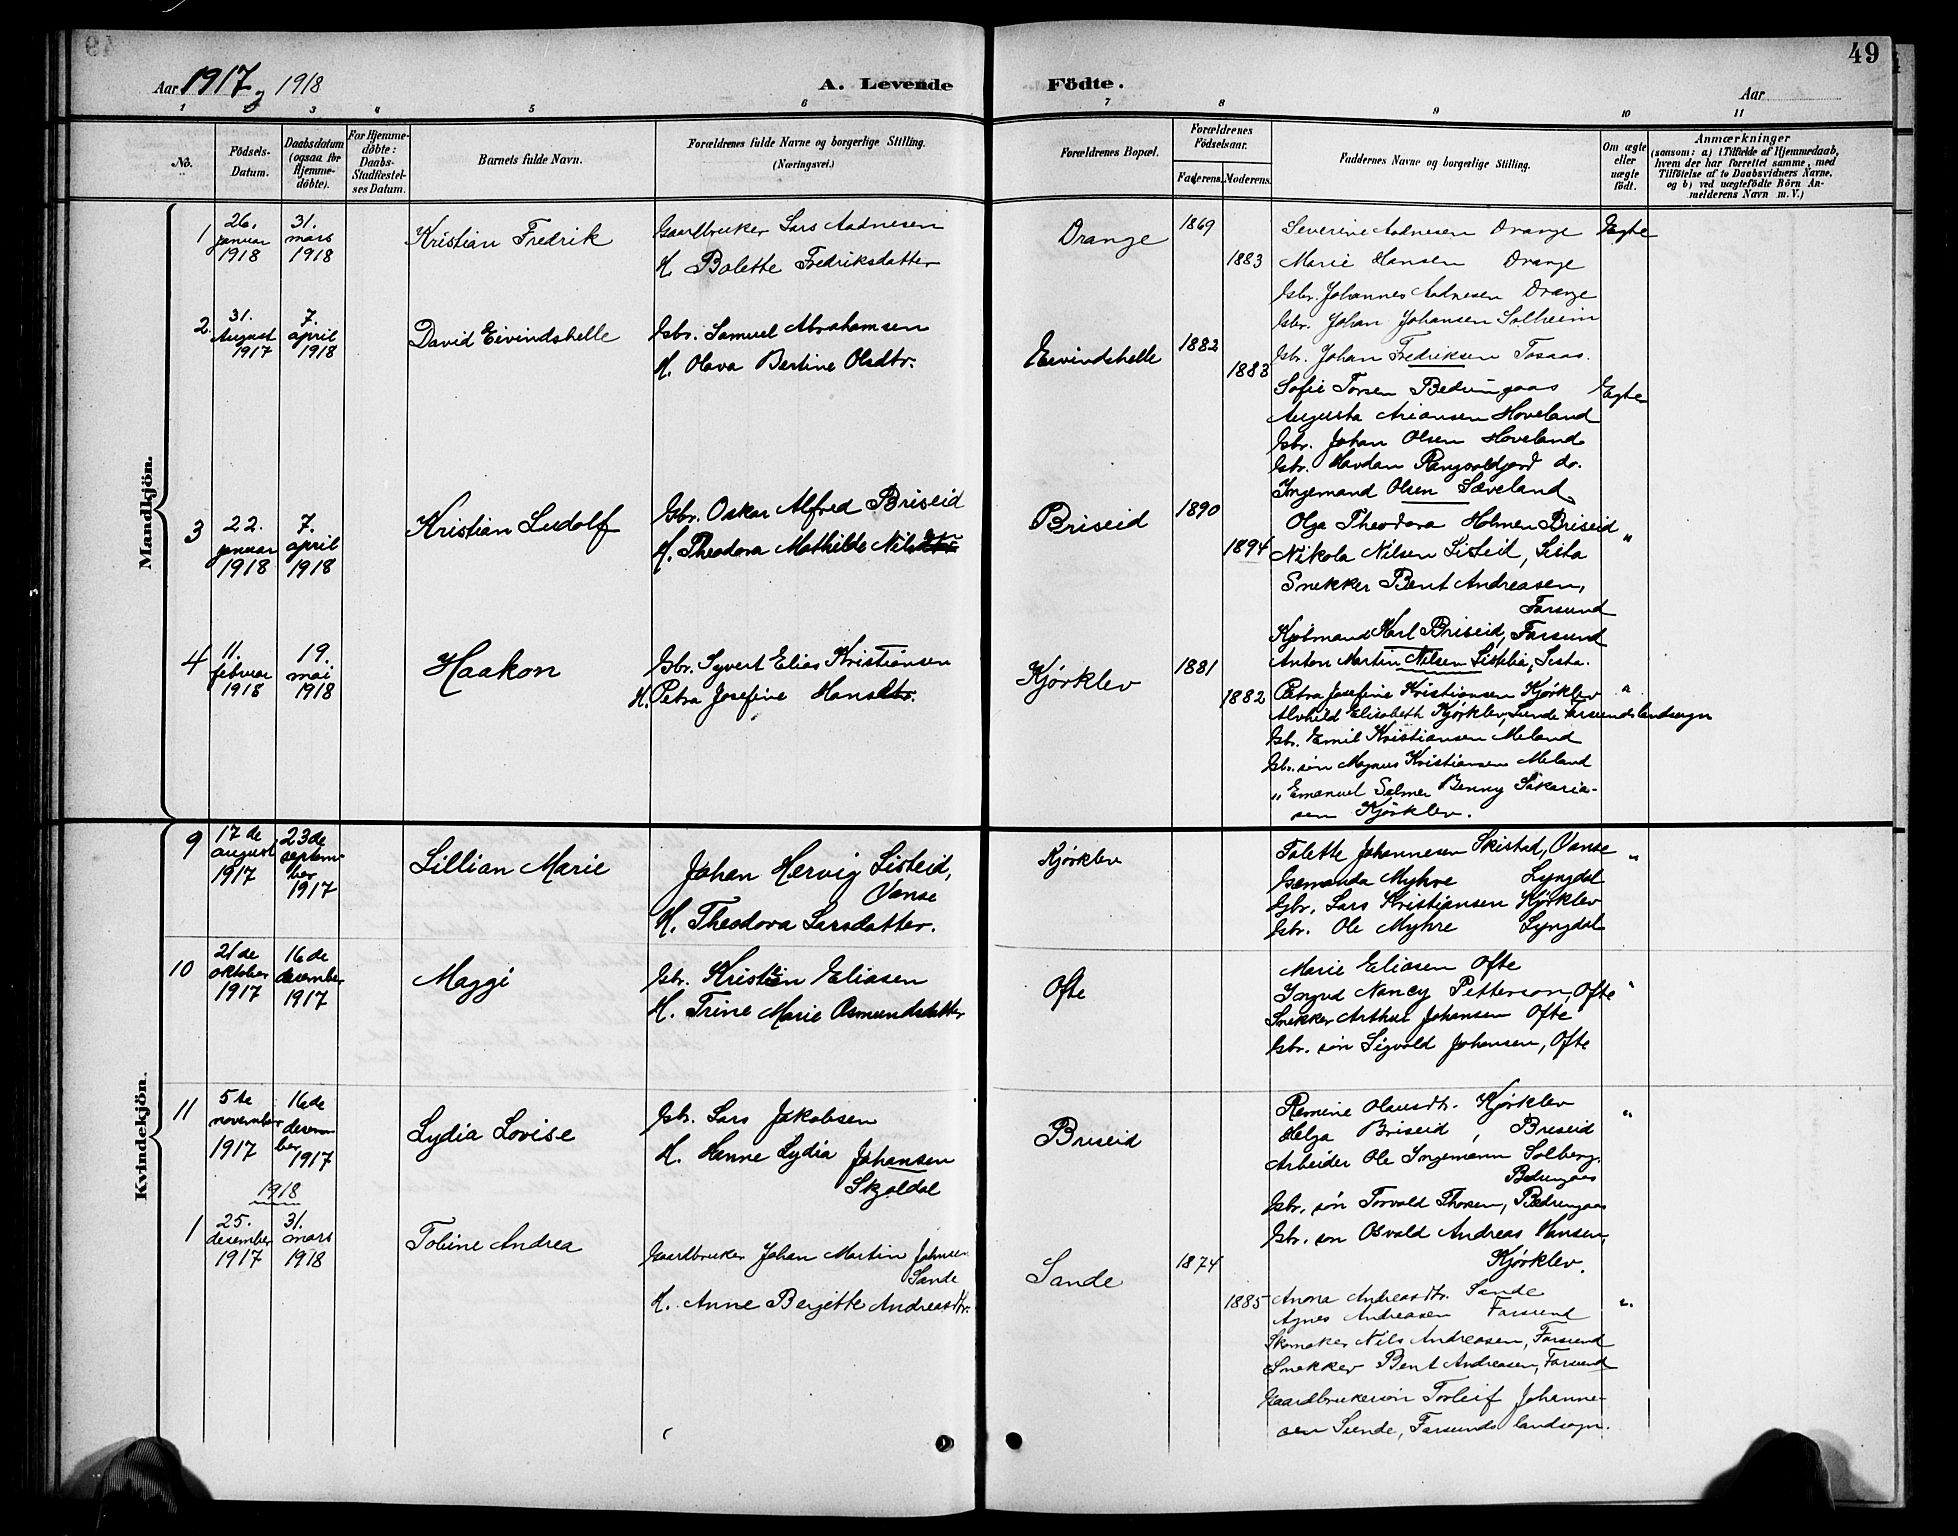 49
Aar 1917 og 1918
A. Levende Födte.
Aar
1 2 3 4 5 6 7 8 9 10 11
No.
Födsels-Datum.
Daabsdatum (ogsaa for Hjemme-döbte).
For Hjemme-döbte: Daabs-Stadfæstel-ses Datum.
Barnets fulde Navn.
Forældrenes fulde Navne og borgerlige Stilling.
(Næringsvei.)
Forældrenes Bopæl.
Forældrenes Födselsaar.
Faderens. Moderens.
Faddernes Navne og borgerlige Stilling.
Om ægte eller uægte födt.
Anmærkninger
(saasom: a) i Tilfælde af Hjemmedaab, hvem der har forrettet samme, med Tilföielse af to Daabsvidners Navne, og b) ved uægtefödte Börn An-melderens Navn m. V.)
Mandkjön.
1
26. januar 1918
31. mars 1918
Kristian Fredrik
Gaardbruker Lars Aadnesen
H. Bolette Fredriksdatter
Drange
1869
1883
Severine Aadnesen Drange
Marie Hansen Drange
Gbr. Johannes Aadnesen Drange
Gbr. Johan Johansen Solheim
Gbr. Johan Fredriksen Tosaas.
Egte
2.
31. August 1917
7. april 1918
David Eivindshelle
Gbr. Samuel Abrahamsen
H. Olava Bertine Olsdtr.
Eivindshelle
1882
1883
Sofie Torsen Bedringaas
Augusta Ariansen Hoveland
Gbr. Johan Olsen Hoveland
Gbr. Havdan Rangvaldjord do.
Ingemand Olsen Sæveland.
Egte
3
22. januar 1918
7. april 1918
Kristian Ludolf
Gbr. Oskar Alfred Briseid
H. Theodora Mathilde Nilsdtr
Briseid
1890
1894
Olga Theodora Holmen Briseid
Nikola Nilsen Listeid, Lista
Snekker Bent Andreasen,
Farsund
Kjøbmand Karl Briseid, Farsund
Anton Martin Nilsen Listeid, Lista.
"
4
11. februar 1918
19. mai 1918
Haakon
Gbr. Syvert Elias Kristiansen
H. Petra Josefine Hansdtr.
Kjørklev
1881
1882
Petra Josefine Kristiansen Kjørklev
Alvhild Elisabeth Kjørklev, Sunde Farsunds landsogn
Gbr. Emil Kristiansen Meland
Gbr. søn Magnus Kristiansen Meland
" Emanuel Salmer Benny Sakaria-
sen Kjørklev.
"
Kvindekjön.
9
17de august 1917
23de septem-ber 1917
Lillian Marie
Johan Hervig Listeid,
Vanse
H. Theodora Larsdatter.
Kjørklev
Talette Johannesen Skistad, Vanse
Gemanda Myhre Lyngdal
Gbr. Lars Kristiansen Kjørklev
Gbr. Ole Myhre Lyngdal
"
10
21de oktober 1917
16de desember 1917
Maggi
Gbr. Kristian Eliasen
H. Trine Marie Osmundsdatter
Ofte
Marie Eliasen Ofte
Ingrid Nancy Petterson, Ofte
Snekker Arthur Johansen Ofte
Gbr. søn Sigvald Johansen, Ofte
"
11
5te november 1917
16de desem-ber 1917
Lydia Lovise
Gbr. Lars Jakobsen
H. Hanne Lydia Johansen
Skjoldal
Briseid
Remine Olausdtr. Kjørklev
Helga Briseid, Briseid
Arbeider Ole Ingemann Solberg.
Bedringaas
Gbr. søn Torvald Thorsen, Bedringaas
Gbr. søn Osvald Andreas Hansen,
Kjørklev.
"
1918
1
25. desember 1917
31. mars 1918
Tobine Andrea
Gaardbruker Johan Martin Johnsen
Sande
H. Anne Bergitte Andreasdtr.
Sande
1874
1885
Anna Andreasdtr. Sande
Agnes Andreasen Farsund
Skomaker Nils Andreasen, Farsund
Snekker Bent Andreasen, Farsund
Gaardbrukersøn Torleif Johanne-
sen Sunde, Farsunds landsogn.
"